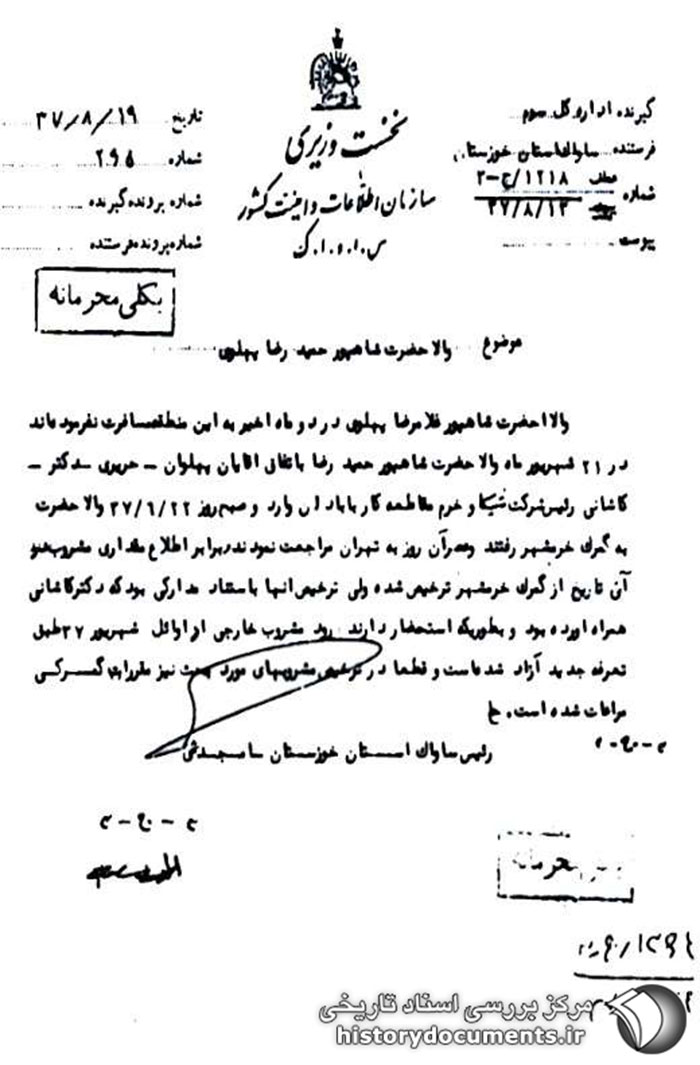 گیرنده اداره کل سوم
فرستنده ساواک استان خوزستان
شماره عطف ۱۲۱۸/ج-۲
۳۷/۸/۱۳
پیوست
نخست وزیری
سازمان اطلاعات و امنیت کشور
س.ا.و.ا.ک
تاریخ ۳۷/۸/۱۹
شماره ۲۹۵
شماره پرونده گیرنده
شماره پرونده فرستنده
بکلی محرمانه
موضوع والاحضرت شاهپور حمید رضا پهلوی
والاحضرت شاهپور غلامرضا پهلوی در دو ماه اخیر به این منطقه مسافرت نفرموده‌اند
در ۲۱ شهریور ماه والا حضرت شاهپور حمید رضا باتفاق اقایان پهلوان – حریری – دکتر –
کاشانی رئیس شرکت شیکا و خرم مقاطعه کار بابادان وارد و صبح روز ۳۷/۶/۲۲ والا حضرت
به گمرک خرمشهر رفتند وعصر آن روز به تهران مراجعت نمودند برابر اطلاع مقداری مشروب
آن تاریخ از گمرک خرمشهر ترخیص شده ولی ترخیص آنها باستناد مدارکی بود که دکتر کاشانی
همراه اورده بود و بطوریکه استحضار دارند ورود مشروب خارجی از اوائل شهریور ۳۷ طبق
تعرفه جدید آزاد شده است و قطعا در ترخیص مشروبهای مورد بحث نیز مقررات گمرکی
مراعات شده است. ح
رئیس ساواک استان خوزستان
محرمانه
مرکز بررسی اسناد تاریخی
historydocuments.ir